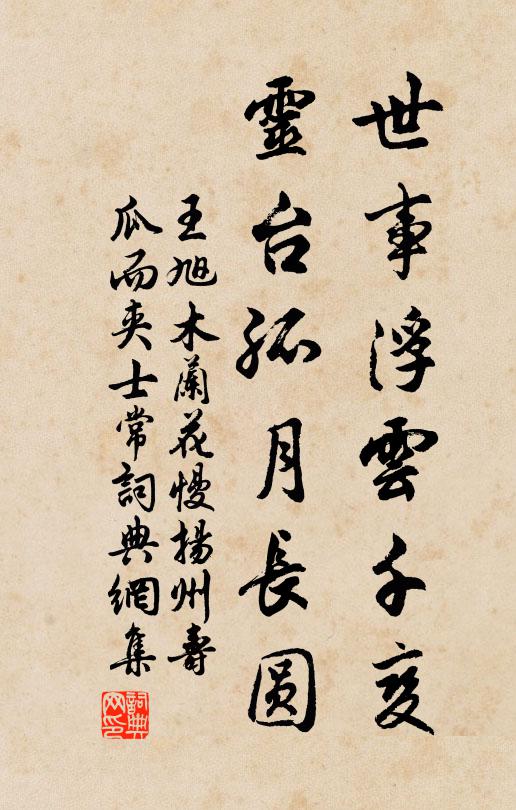 世事浮雲千变
靈台孤月長圓
王旭木蘭花慢揚州壽
瓜而夾士常詞典網集
詞典网印